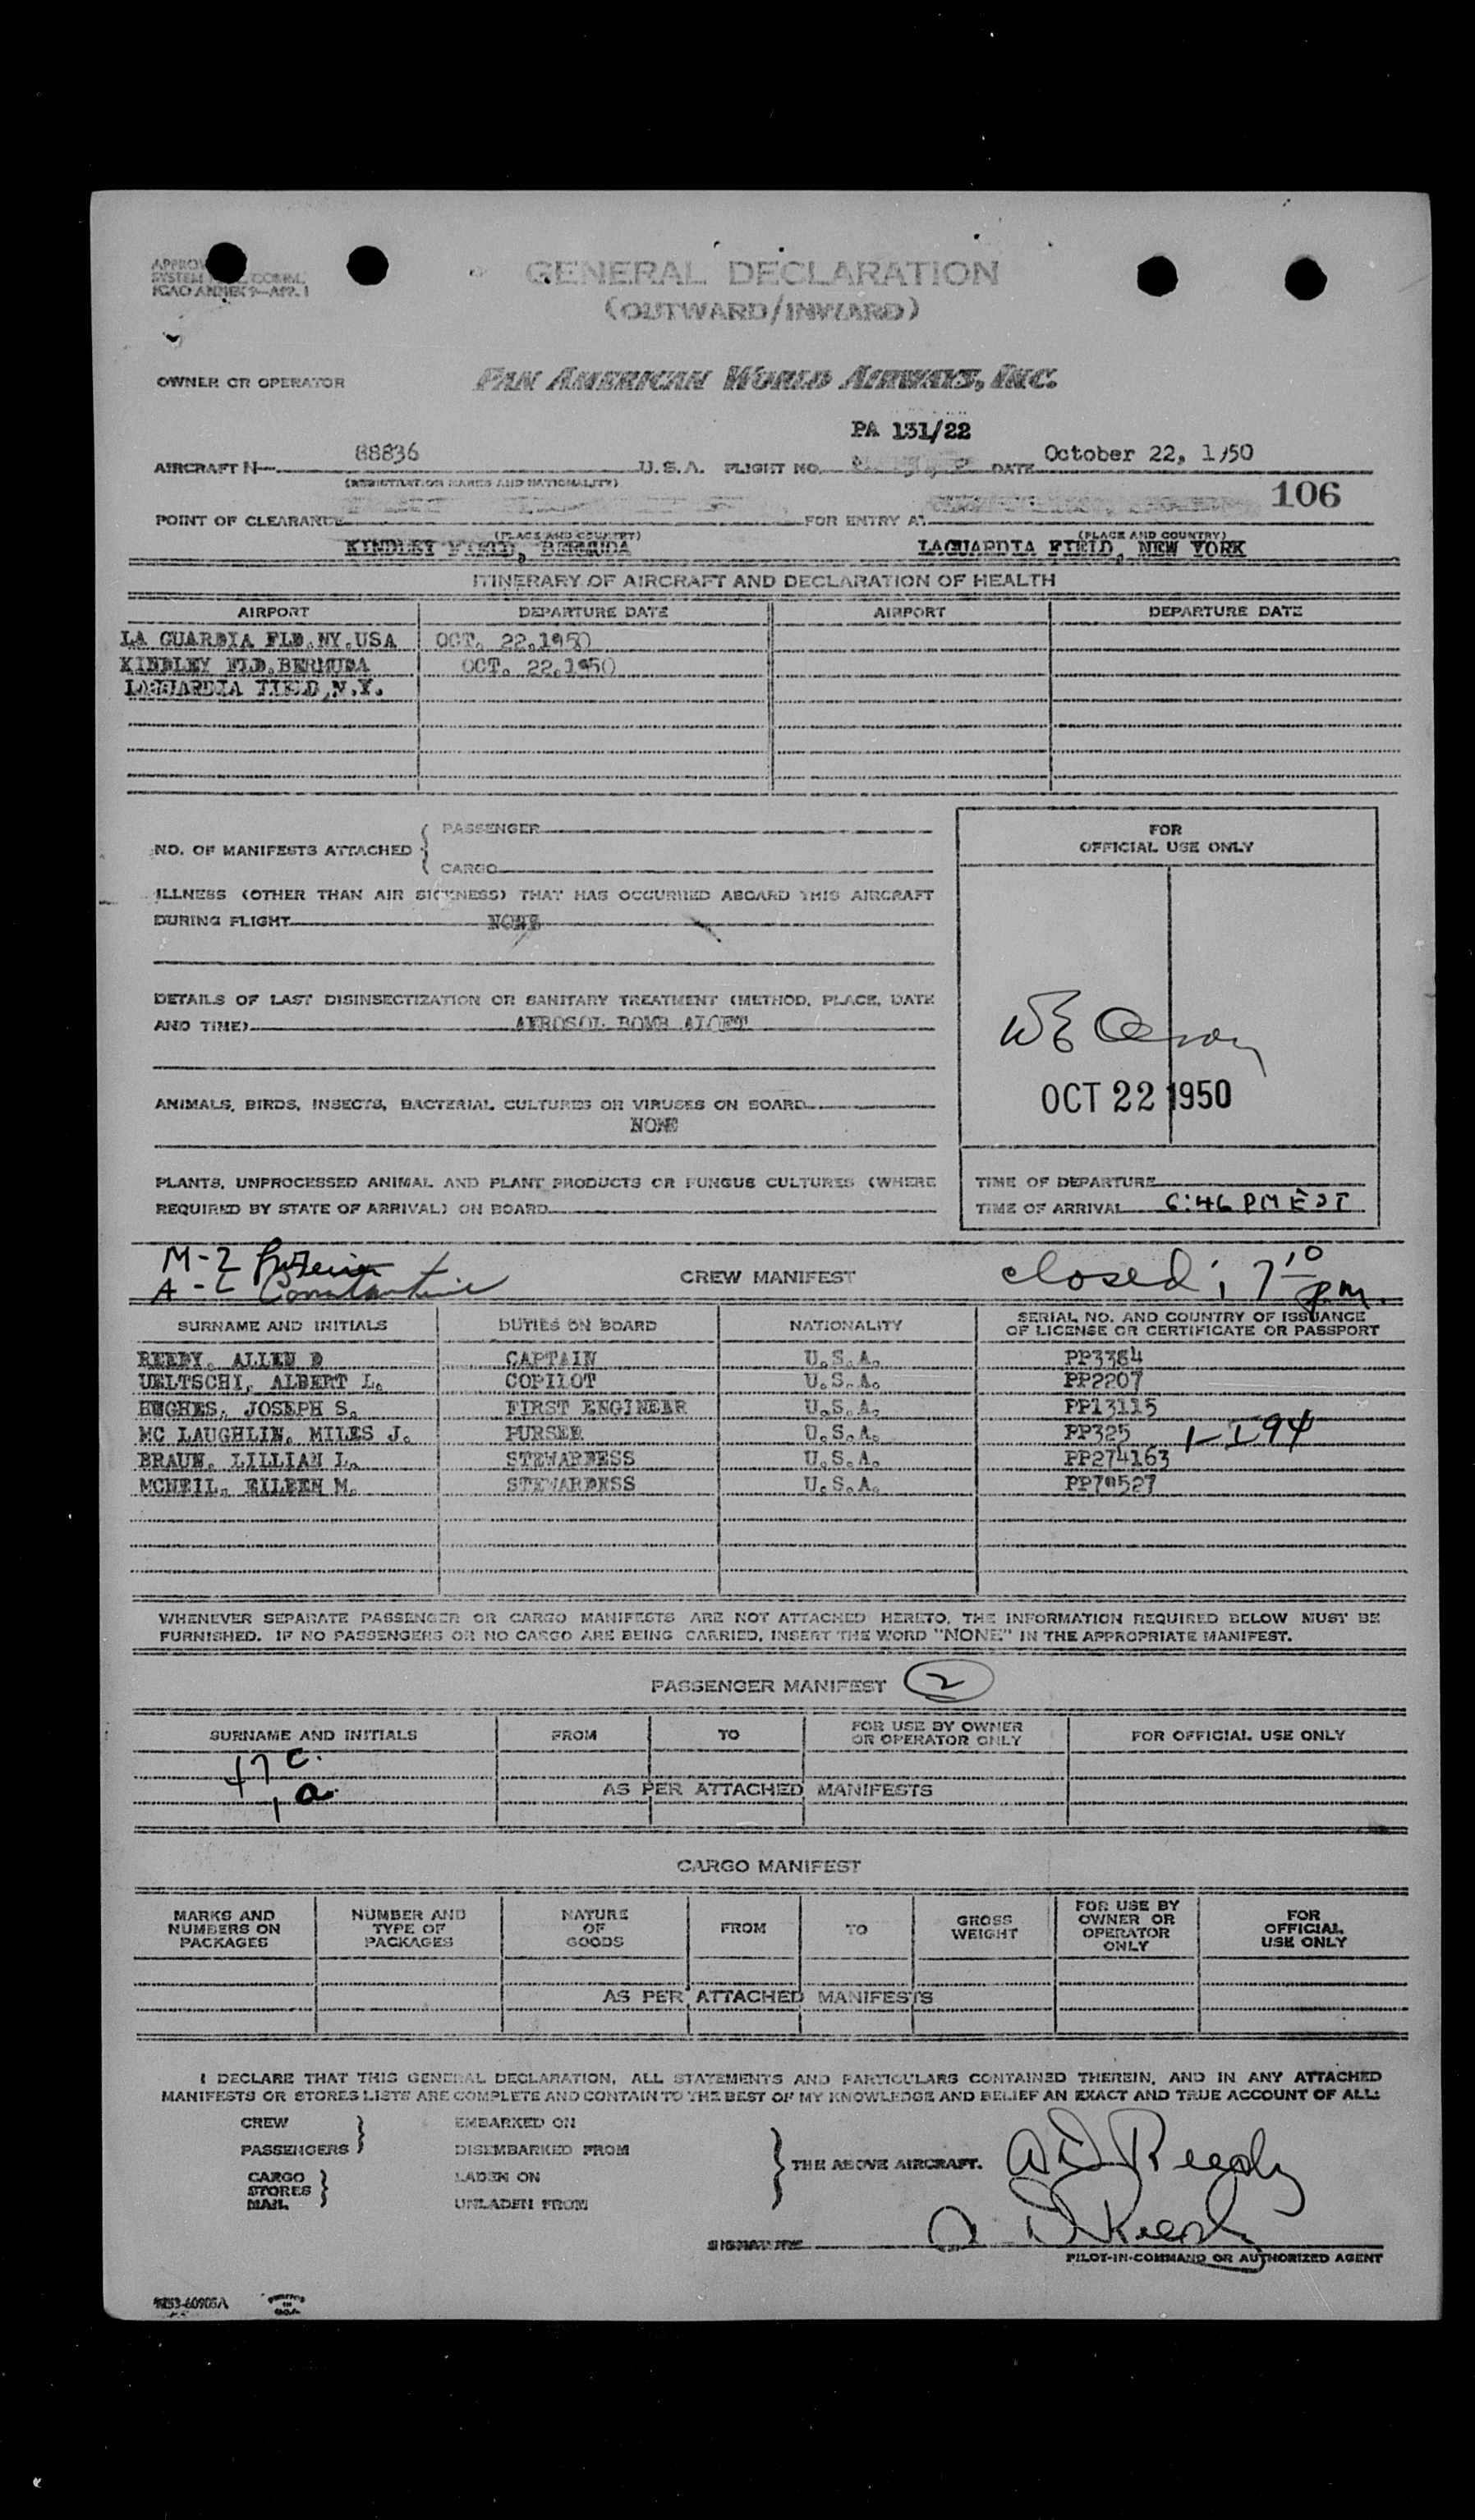 GENERAL DECLARATION
(OUTWARD/INWARD)
OWNER OR OPERATOR PAN AMERICAN WORLD AIRWAYS, INC.
PA 131/22
AIRCRAFT N- 88836 U.S.A. FLIGHT NO. DATE October 22, 1950
(REGISTRATION MARKS AND NATIONALITY)
106
POINT OF CLEARANCE FOR ENTRY AT
(PLACE AND COUNTRY) (PLACE AND COUNTRY)
KINDLEY FIELD, BERMUDA LAGUARDIA FIELD, NEW YORK
ITINERARY OF AIRCRAFT AND DECLARATION OF HEALTH
AIRPORT DEPARTURE DATE AIRPORT DEPARTURE DATE
LA GUARDIA FLD.NY.USA OCT. 22.1950
KINDLEY FLD.BERMUDA OCT. 22.1950
LAGUARDIA FIELD,N.Y.
NO. OF MANIFESTS ATTACHED
PASSENGER
CARGO
ILLNESS (OTHER THAN AIR SICKNESS) THAT HAS OCCURRED ABOARD THIS AIRCRAFT
DURING FLIGHT NONE
DETAILS OF LAST DISINSECTIZATION OR SANITARY TREATMENT (METHOD, PLACE, DATE
AND TIME) AEROSOL BOMB ALOFT
ANIMALS, BIRDS, INSECTS, BACTERIAL CULTURES OR VIRUSES ON BOARD
NONE
PLANTS, UNPROCESSED ANIMAL AND PLANT PRODUCTS OR FUNGUS CULTURES (WHERE
REQUIRED BY STATE OF ARRIVAL) ON BOARD
FOR
OFFICIAL USE ONLY
OCT 22 1950
TIME OF DEPARTURE
TIME OF ARRIVAL 6:46 PM EST
M-2
A-2 Constantine
CREW MANIFEST
closed; 7 10 pm.
SURNAME AND INITIALS DUTIES ON BOARD NATIONALITY SERIAL NO. AND COUNTRY OF ISSUANCE
OF LICENSE OR CERTIFICATE OR PASSPORT
REEDY, ALLEN D CAPTAIN U.S.A. PP3384
UELTSCHI, ALBERT L. COPILOT U.S.A. PP2207
HUGHES, JOSEPH S. FIRST ENGINEER U.S.A. PP13115
MC LAUGHLIN, MILES J. PURSER U.S.A. PP325 1-I94
BRAUN, LILLIAN L. STEWARDESS U.S.A. PP274163
MCNEIL, EILEEN M. STEWARDESS U.S.A.
WHENEVER SEPARATE PASSENGER OR CARGO MANIFESTS ARE NOT ATTACHED HERETO, THE INFORMATION REQUIRED BELOW MUST BE
FURNISHED. IF NO PASSENGERS OR NO CARGO ARE BEING CARRIED, INSERT THE WORD "NONE" IN THE APPROPRIATE MANIFEST.
PASSENGER MANIFEST 2
SURNAME AND INITIALS FROM TO FOR USE BY OWNER
OR OPERATOR ONLY FOR OFFICIAL USE ONLY
47 c.
1 a.
AS PER ATTACHED MANIFESTS
CARGO MANIFEST
MARKS AND
NUMBERS ON
PACKAGES
NUMBER AND
TYPE OF
PACKAGES
NATURE
OF
GOODS
FROM
TO
GROSS
WEIGHT
FOR USE BY
OWNER OR
OPERATOR
ONLY
FOR
OFFICIAL
USE ONLY
AS PER ATTACHED MANIFESTS
I DECLARE THAT THIS GENERAL DECLARATION, ALL STATEMENTS AND PARTICULARS CONTAINED THEREIN, AND IN ANY ATTACHED
MANIFESTS OR STORES LISTS ARE COMPLETE AND CONTAIN TO THE BEST OF MY KNOWLEDGE AND BELIEF AN EXACT AND TRUE ACCOUNT OF ALL:
CREW EMBARKED ON
PASSENGERS DISEMBARKED FROM
THE ABOVE AIRCRAFT. A D Reedy
CARGO LADEN ON
STORES
MAIL UNLADEN FROM
SIGNATURE A D Reedy
PILOT-IN-COMMAND OR AUTHORIZED AGENT